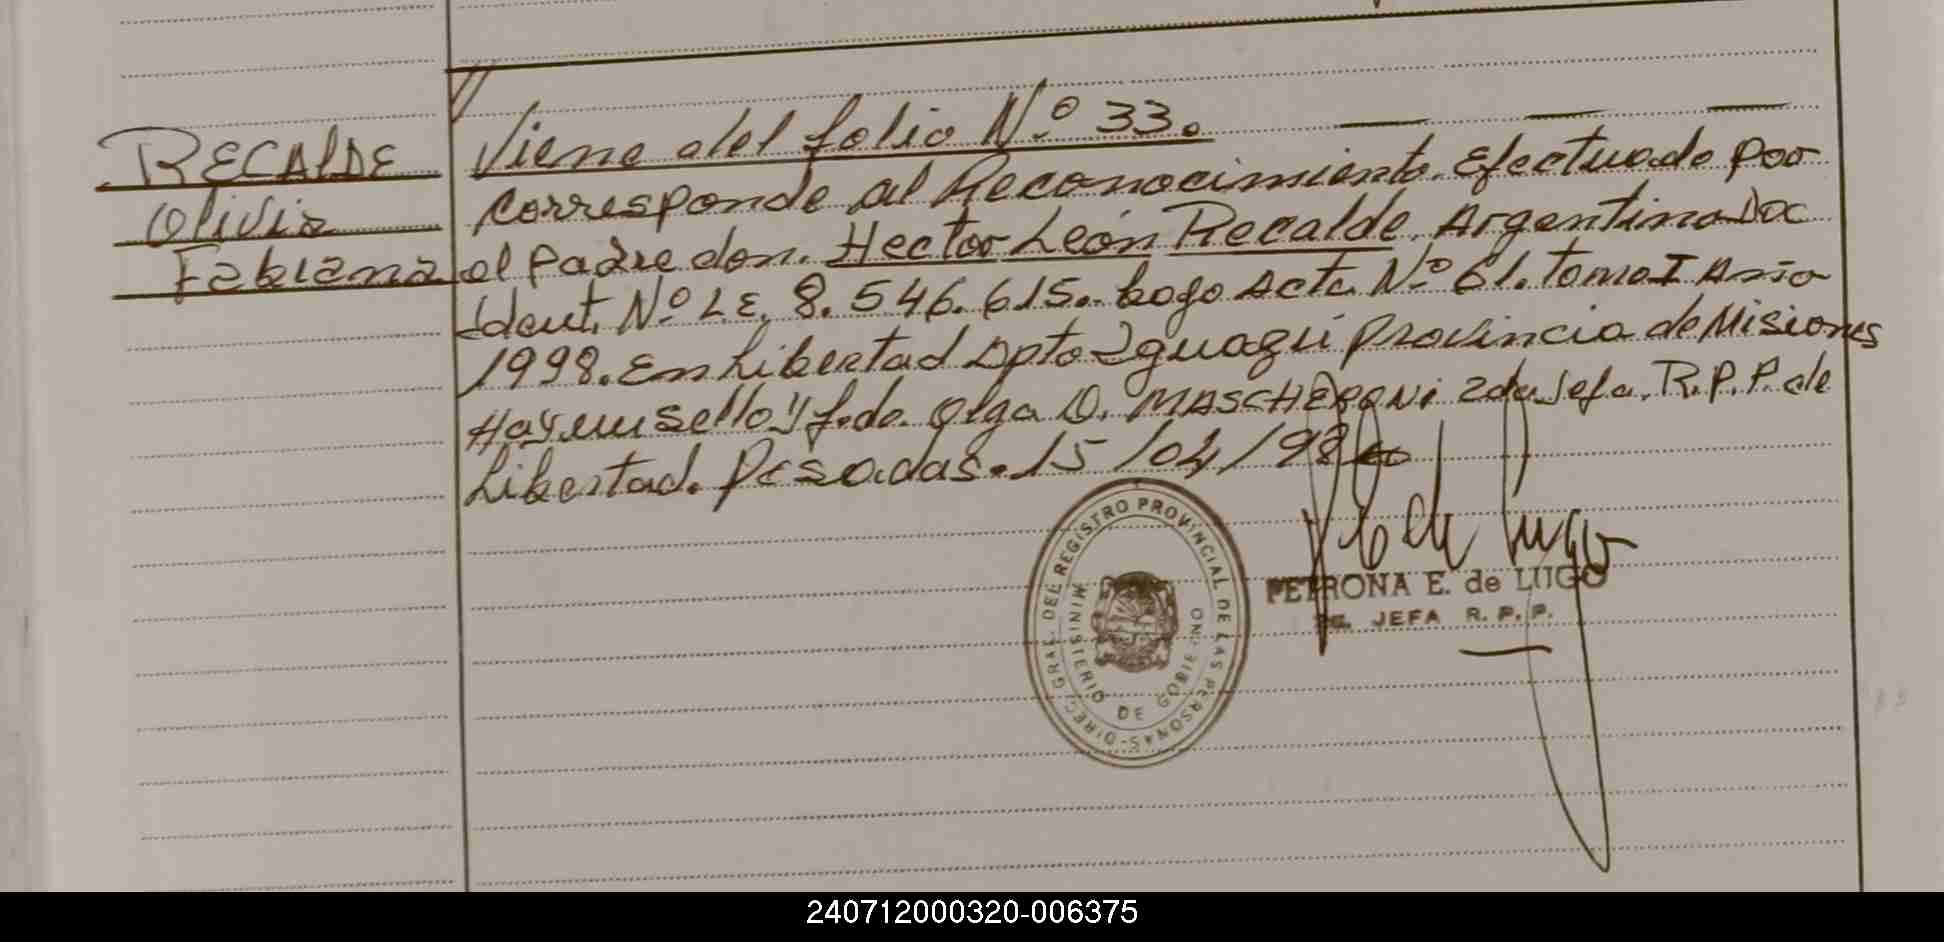 RECALDE
Olivia
Fabiana
Viene del folio Nº 33.
Corresponde al Reconocimiento. Efectuado por
el Padre don. Hector León Recalde. Argentino Doc
Ident. Nº L.E. 8.546.615.- bajo Acta Nº 61. tomo I Año
1998. En Libertad Dpto Iguazú Provincia de Misiones
Hay un sello y fdo. Olga D. MASCHERONI 2da Jefa. R.P.P. de
Libertad. Posadas. 15/04/98
PETRONA E. de LUGO
JEFA R. P. P.
DIREC. GRAL. DEL REGISTRO PROVINCIAL DE LAS PERSONAS-
MINISTERIO DE GOBIERNO
240712000320-006375